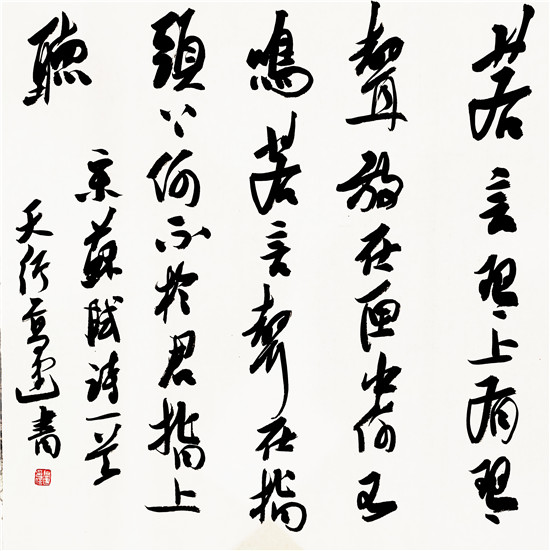 若言琴上有琴
聲放在匣中何不
鳴若言聲在指
頭上何不於君指上
聽
宋蘇軾詩一首
天行書